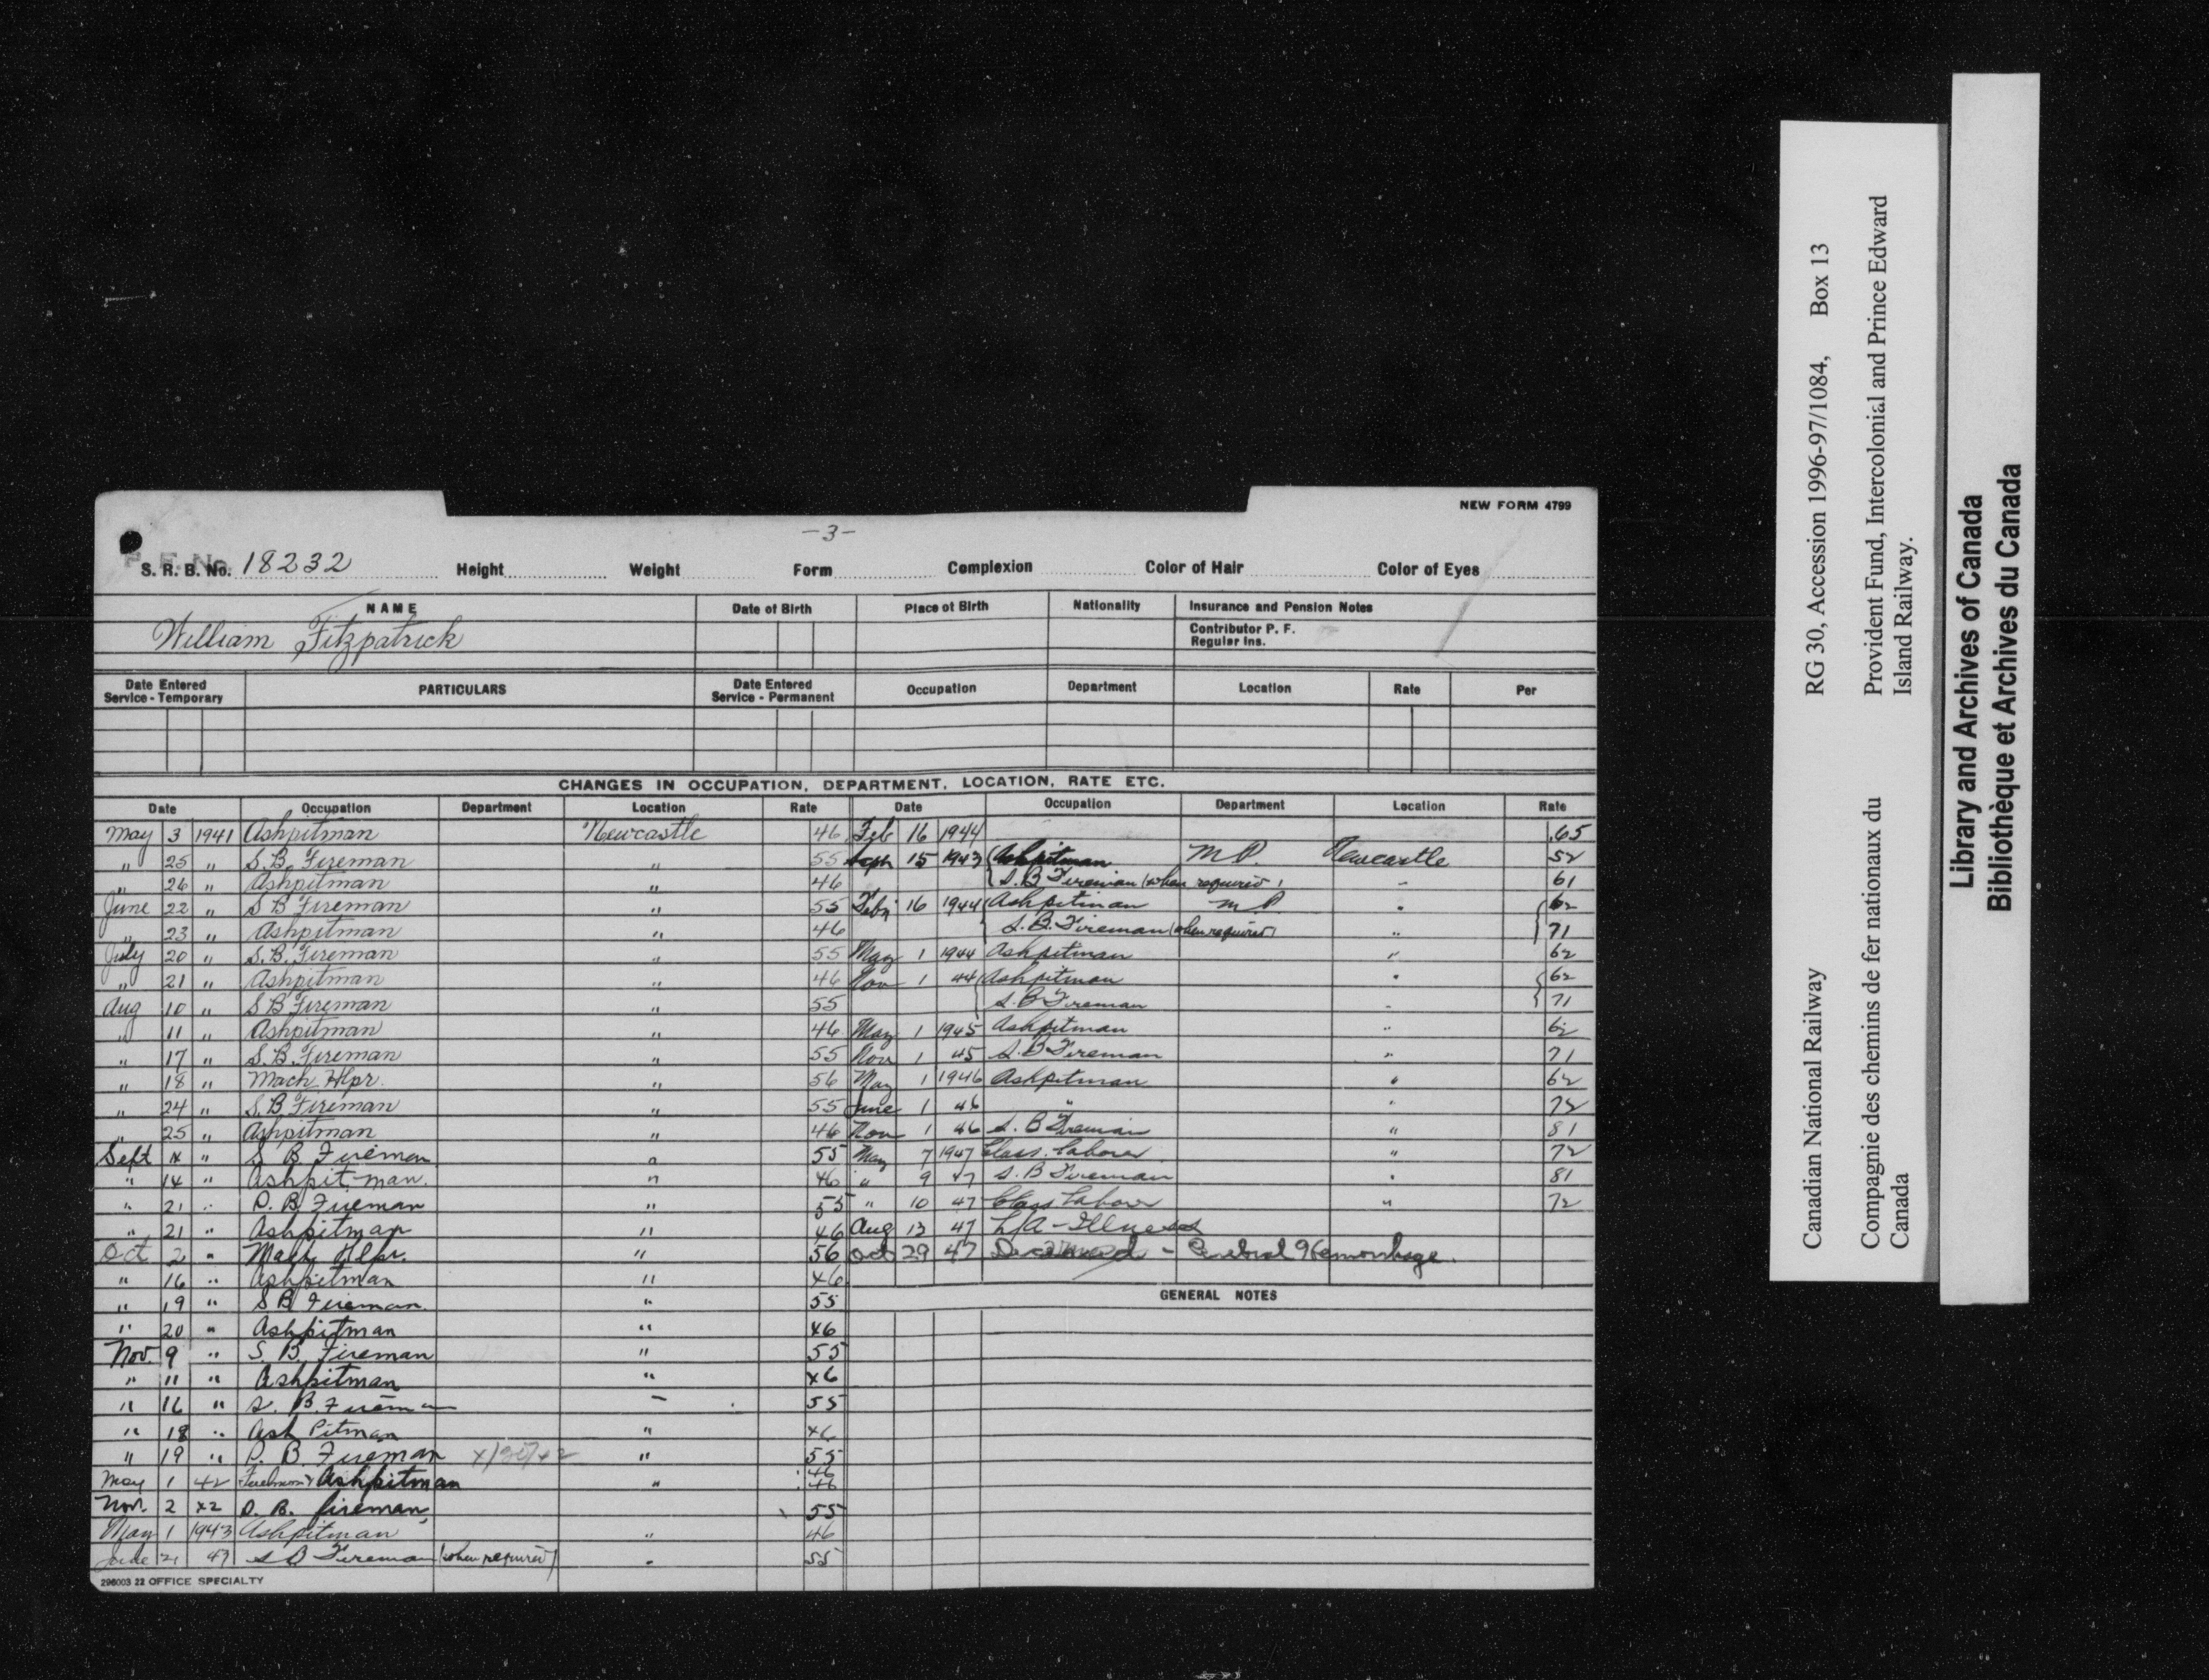 NEW FORM 4799
-3-
P. F. No.
S. R. B. No. 18232 Height Weight Form Complexion Color of Hair Color of Eyes
NAME Date of Birth Place of Birth Nationality Insurance and Pension Notes
William Fitzpatrick
Contributor P. F.
Regular Ins.
Date Entered Service - Temporary PARTICULARS Date Entered Service - Permanent Occupation Department Location Rate Per
CHANGES IN OCCUPATION, DEPARTMENT, LOCATION, RATE ETC.
Date Occupation Department Location Rate Date Occupation Department Location Rate
May 3 1941 Ashpitman Newcastle 46
" 25 " S.B. Fireman " 55
" 26 " Ashpitman " 46
June 22 " S B Fireman " 55
" 23 " Ashpitman " 46
July 20 " S.B. Fireman " 55
" 21 " Ashpitman " 46
Aug 10 " S B Fireman " 55
" 11 " Ashpitman " 46
" 17 " S.B. Fireman " 55
" 18 " Mach Hlpr. " 56
" 24 " S.B Fireman " 55
" 25 " Ashpitman " 46
Sept " S B. Fireman " 55
" 14 " Ashpit man. " 46
" 21 " S. B. Fireman " 55
" 21 " Ashpitman " 46
Oct 2 " Mach Hlpr. " 56
" 16 " Ashpitman " 46
" 19 " S B Fireman. " 55
" 20 " Ashpitman " 46
Nov. 9 " S. B. Fireman " 55
" 11 " Ashpitman " 46
" 16 " S. B. Fireman " 55
" 18 " Ash Pitman " 46
" 19 " S. B. Fireman " 55
May 1 42 Ashpitman " 46
Nov. 2 42 S. B. fireman 55
May 1 1943 Ashpitman " 46
June 21 43 S B Fireman (when required) " 55
Feb 16 1944 .65
Sept 15 1943 Ashpitman M P. Newcastle 52
S. B Fireman (when required) " 61
Feby 16 1944 Ashpitman M P " 62
S. B. Fireman (when required) " 71
May 1 1944 Ashpitman " 62
Nov 1 44 Ashpitman " 62
S. B Fireman " 71
May 1 1945 Ashpitman " 62
Nov 1 45 S. B Fireman " 71
May 1 1946 Ashpitman " 62
June 1 46 " " 72
Nov 1 46 S. B Fireman " 81
May 7 1947 Class. Laborer " 72
" 9 47 S. B Fireman " 81
" 10 47 Class Laborer " 72
Aug 13 47 L/A - Illness
Oct 29 47 Deceased - Cerebral Hemorrhage.
GENERAL NOTES
296003 22 OFFICE SPECIALTY
Canadian National Railway RG 30, Accession 1996-97/1084, Box 13
Compagnie des chemins de fer nationaux du Canada Provident Fund, Intercolonial and Prince Edward Island Railway.
Library and Archives of Canada
Bibliothèque et Archives du Canada